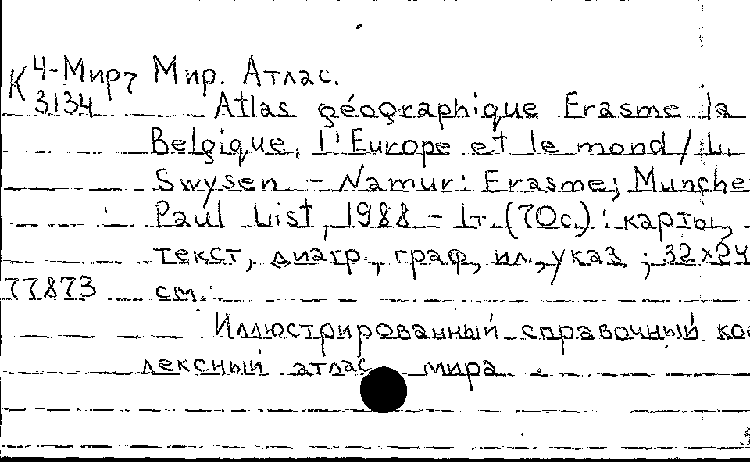 К 4-Мир7 Мир. Атлас.
3134 Atlas géographique Erasme la
Belgique, l'Europe et le mond / L.
Swysen. - Namur: Erasme; Munche
Paul List, 1988 - 1т. (70с.) : карты,
текст, диагр., граф, ил., указ ; 32x24
77873 см.
Иллюстрированный справочный ко
лексный атлас мира